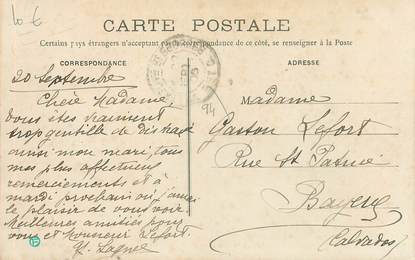 10 €
CARTE POSTALE
Certains pays étrangers n'acceptant pas de correspondance de ce côté, se renseigner à la Poste
CORRESPONDANCE
ADRESSE
20 Septembre
Chère Madame,
Vous êtes vraiment
trop gentille de
ainsi mon mari, tous
mes plus affectueux
remerciements et à
mardi prochain où j'aurai
le plaisir de vous voir.
Meilleures amitiés pour
vous et Monsieur Lefort.
94
Madame
Gaston Lefort
Rue St Patrice
Bayeux
Calvados